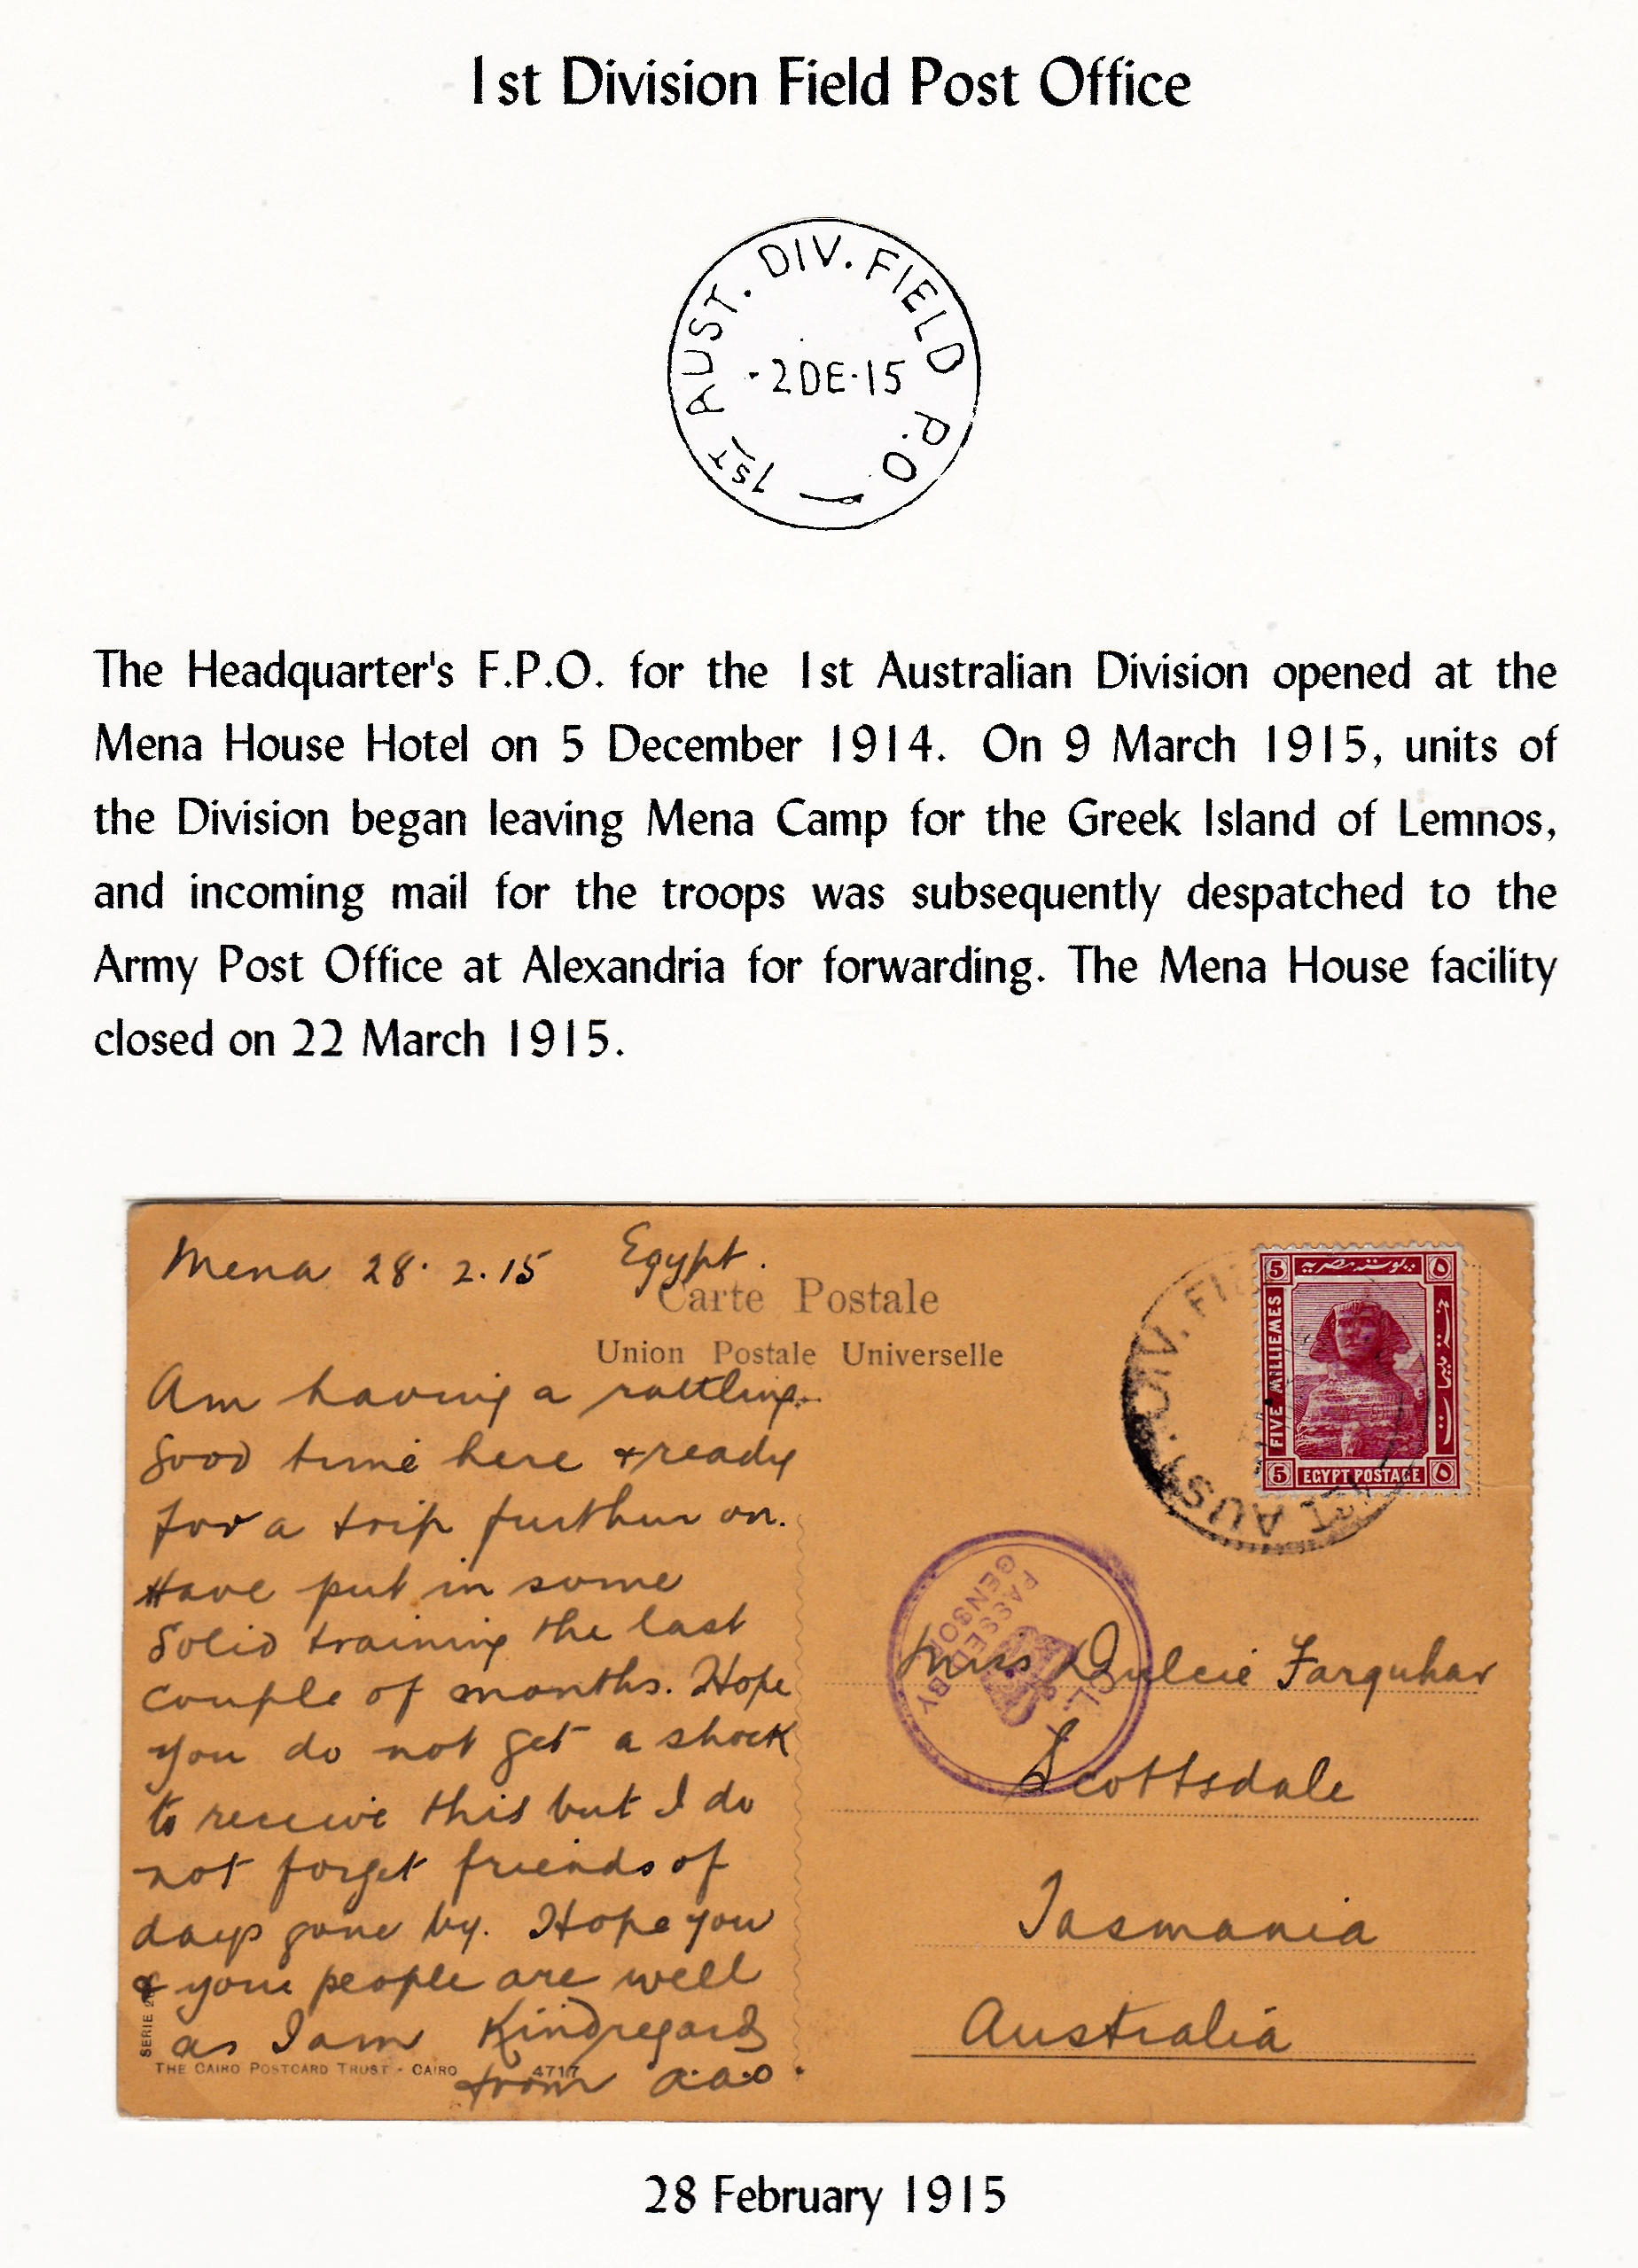 1st Division Field Post Office
1ST AUST. DIV. FIELD P.O.
·2DE·15
The Headquarter's F.P.O. for the 1st Australian Division opened at the
Mena House Hotel on 5 December 1914. On 9 March 1915, units of
the Division began leaving Mena Camp for the Greek Island of Lemnos,
and incoming mail for the troops was subsequently despatched to the
Army Post Office at Alexandria for forwarding. The Mena House facility
closed on 22 March 1915.
Mena 28. 2. 15 Egypt.
Carte Postale
Union Postale Universelle
Am having a rattling
good time here & ready
for a trip further on.
Have put in some
solid training the last
couple of months. Hope
you do not get a shock
to receive this but I do
not forget friends of
days gone by. Hope you
& your people are well
as I am Kind regards
from a.a.o.
SERIE
THE CAIRO POSTCARD TRUST - CAIRO 4717
5 ٥
FIVE MILLIEMES
5 EGYPT POSTAGE ٥
ST AUST. DIV. FIE
PASSED BY
CENSOR
Miss Dulcie Farquhar
Scottsdale
Tasmania
Australia
28 February 1915